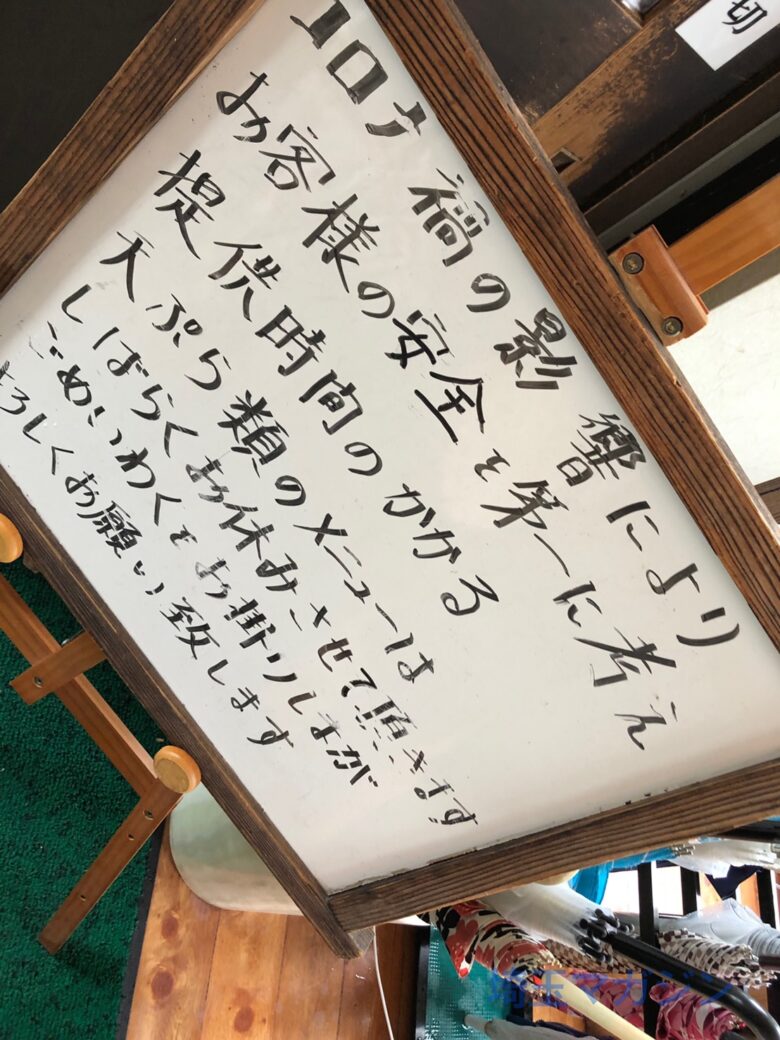 コロナ禍の影響により
お客様の安全を第一に考え
提供時間のかかる
天ぷら類のメニューは
しばらくお休みさせて頂きます
ごめいわくをお掛けしますが
よろしくお願い致します
切
埼玉マガジン